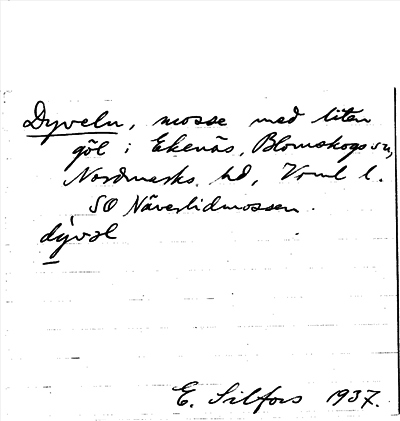 Dyveln, mosse med liten
göl i Ekenäs, Blomskogs sn,
Nordmarks hd, Vrml l.
SO Näverlidmossen.
dy̠vəl
E. Silfors 1937.